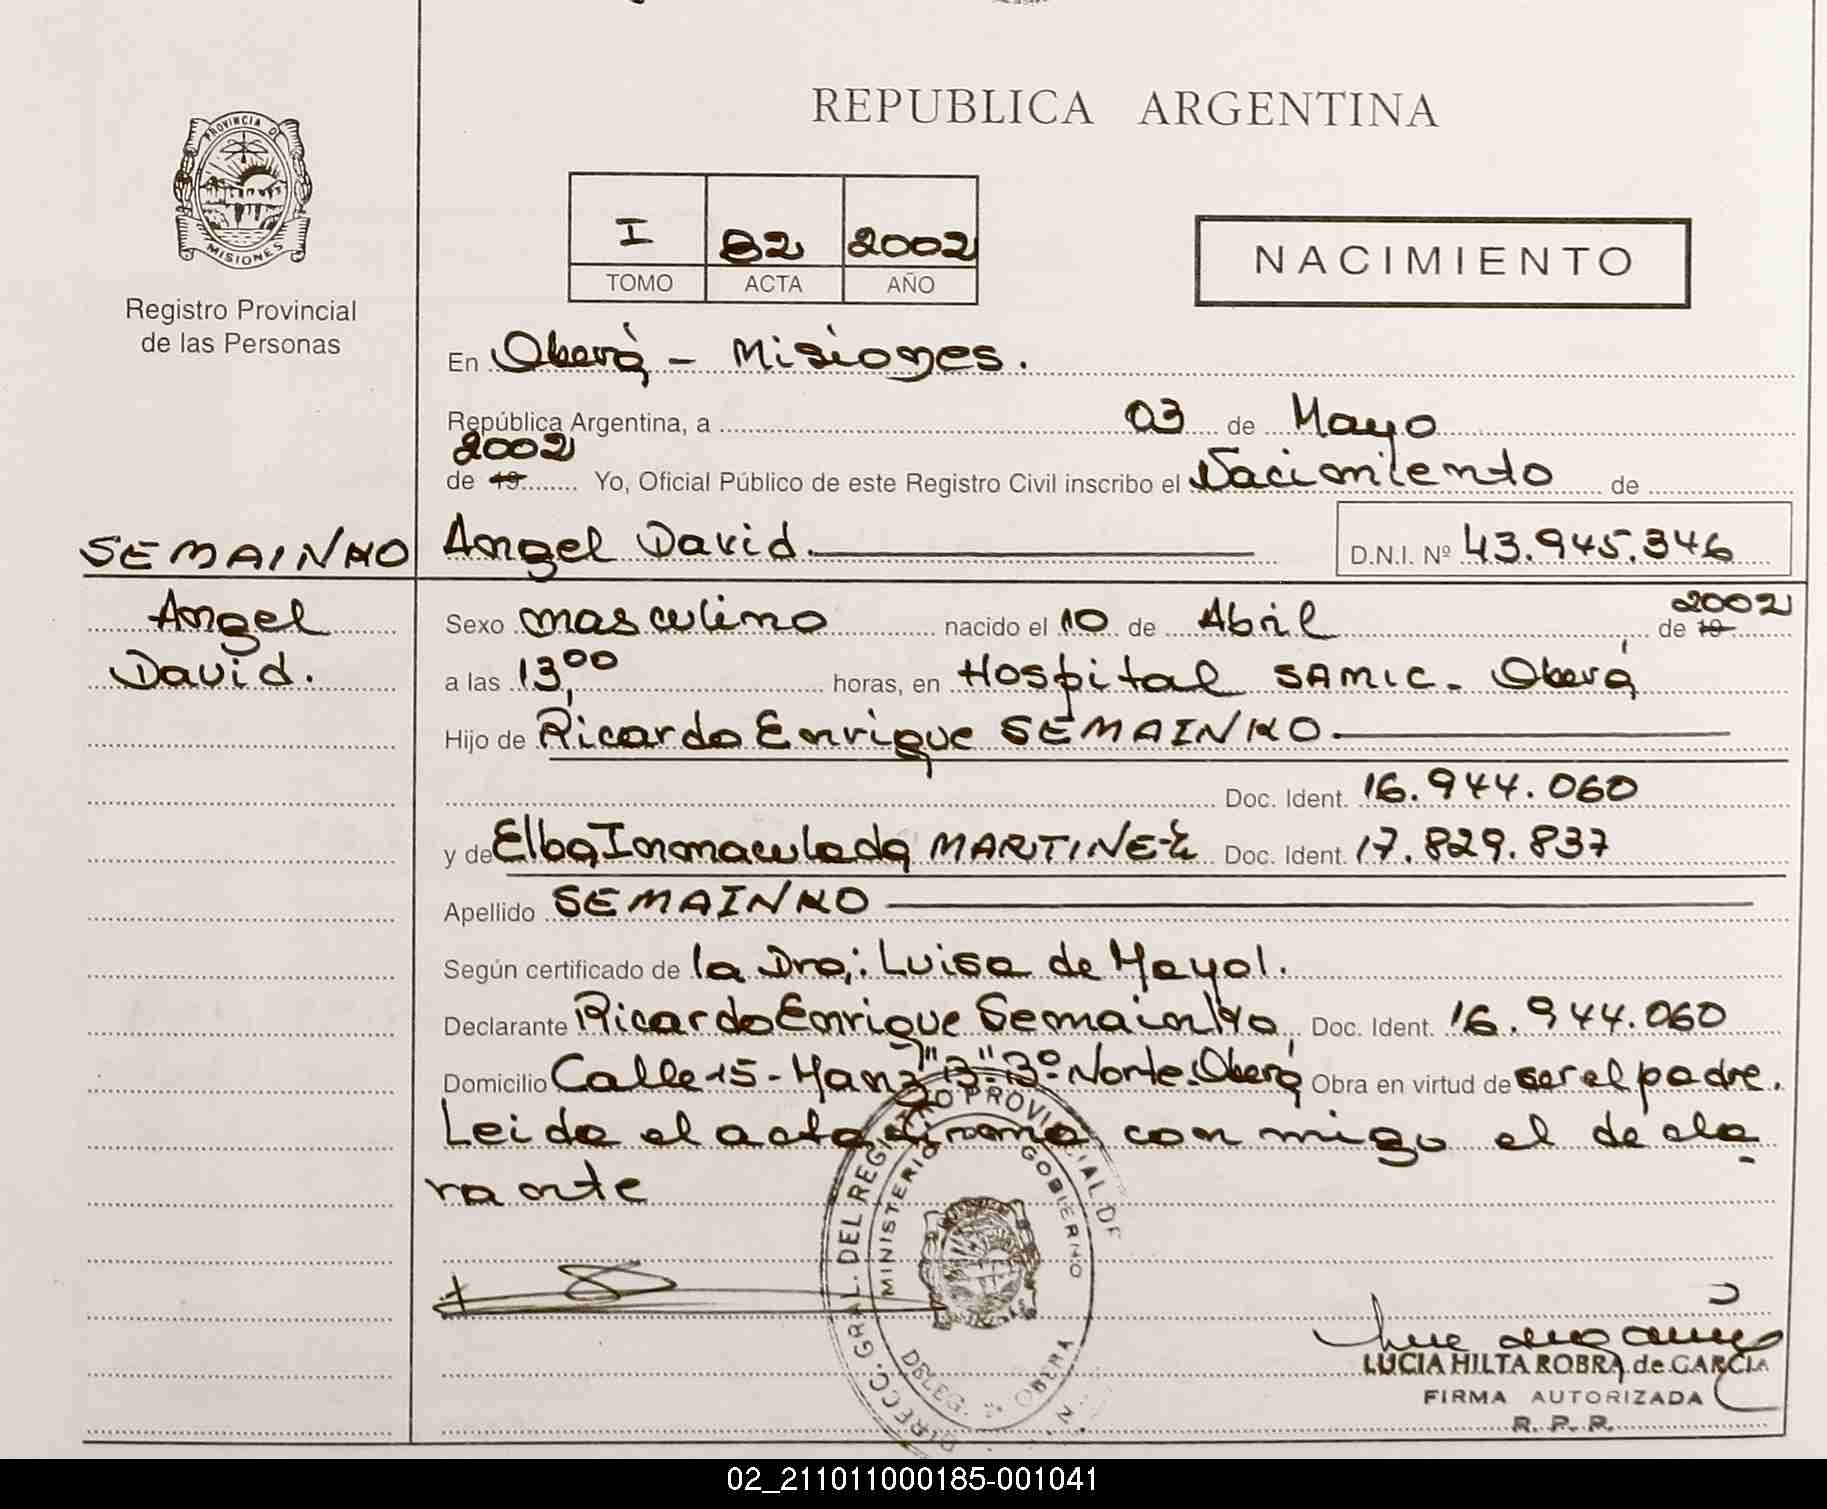 REPUBLICA ARGENTINA
PROVINCIA DE
MISIONES
Registro Provincial
de las Personas
I 82 2002
TOMO ACTA AÑO
NACIMIENTO
En Oberá - Misiones.
República Argentina, a 03 de Mayo
2002
de 19 Yo, Oficial Público de este Registro Civil inscribo el Nacimiento de
SEMAINKO Angel David. D.N.I. Nº 43.945.346
Angel
David.
Sexo masculino nacido el 10 de Abril de 19 2002
a las 13,00 horas, en Hospital SAMIC. Oberá
Hijo de Ricardo Enrique SEMAINKO.
Doc. Ident. 16.944.060
y de Elba Inmaculada MARTINEZ Doc. Ident. 17.829.837
Apellido SEMAINKO
Según certificado de la Dra,: Luisa de Mayol.
Declarante Ricardo Enrique Semainko Doc. Ident. 16.944.060
Domicilio Calle 15 - Manz "13" 3º Norte. Oberá Obra en virtud de ser el padre.
Leida el acta firma con migo el decla
rante
DIRECC. GRAL. DEL REGISTRO PROVINCIAL DE
MINISTERIO GOBIERNO
DELEG. OBERA
LUCIA HILTA ROBRA de GARCIA
FIRMA AUTORIZADA
R. P. P.
02_211011000185-001041